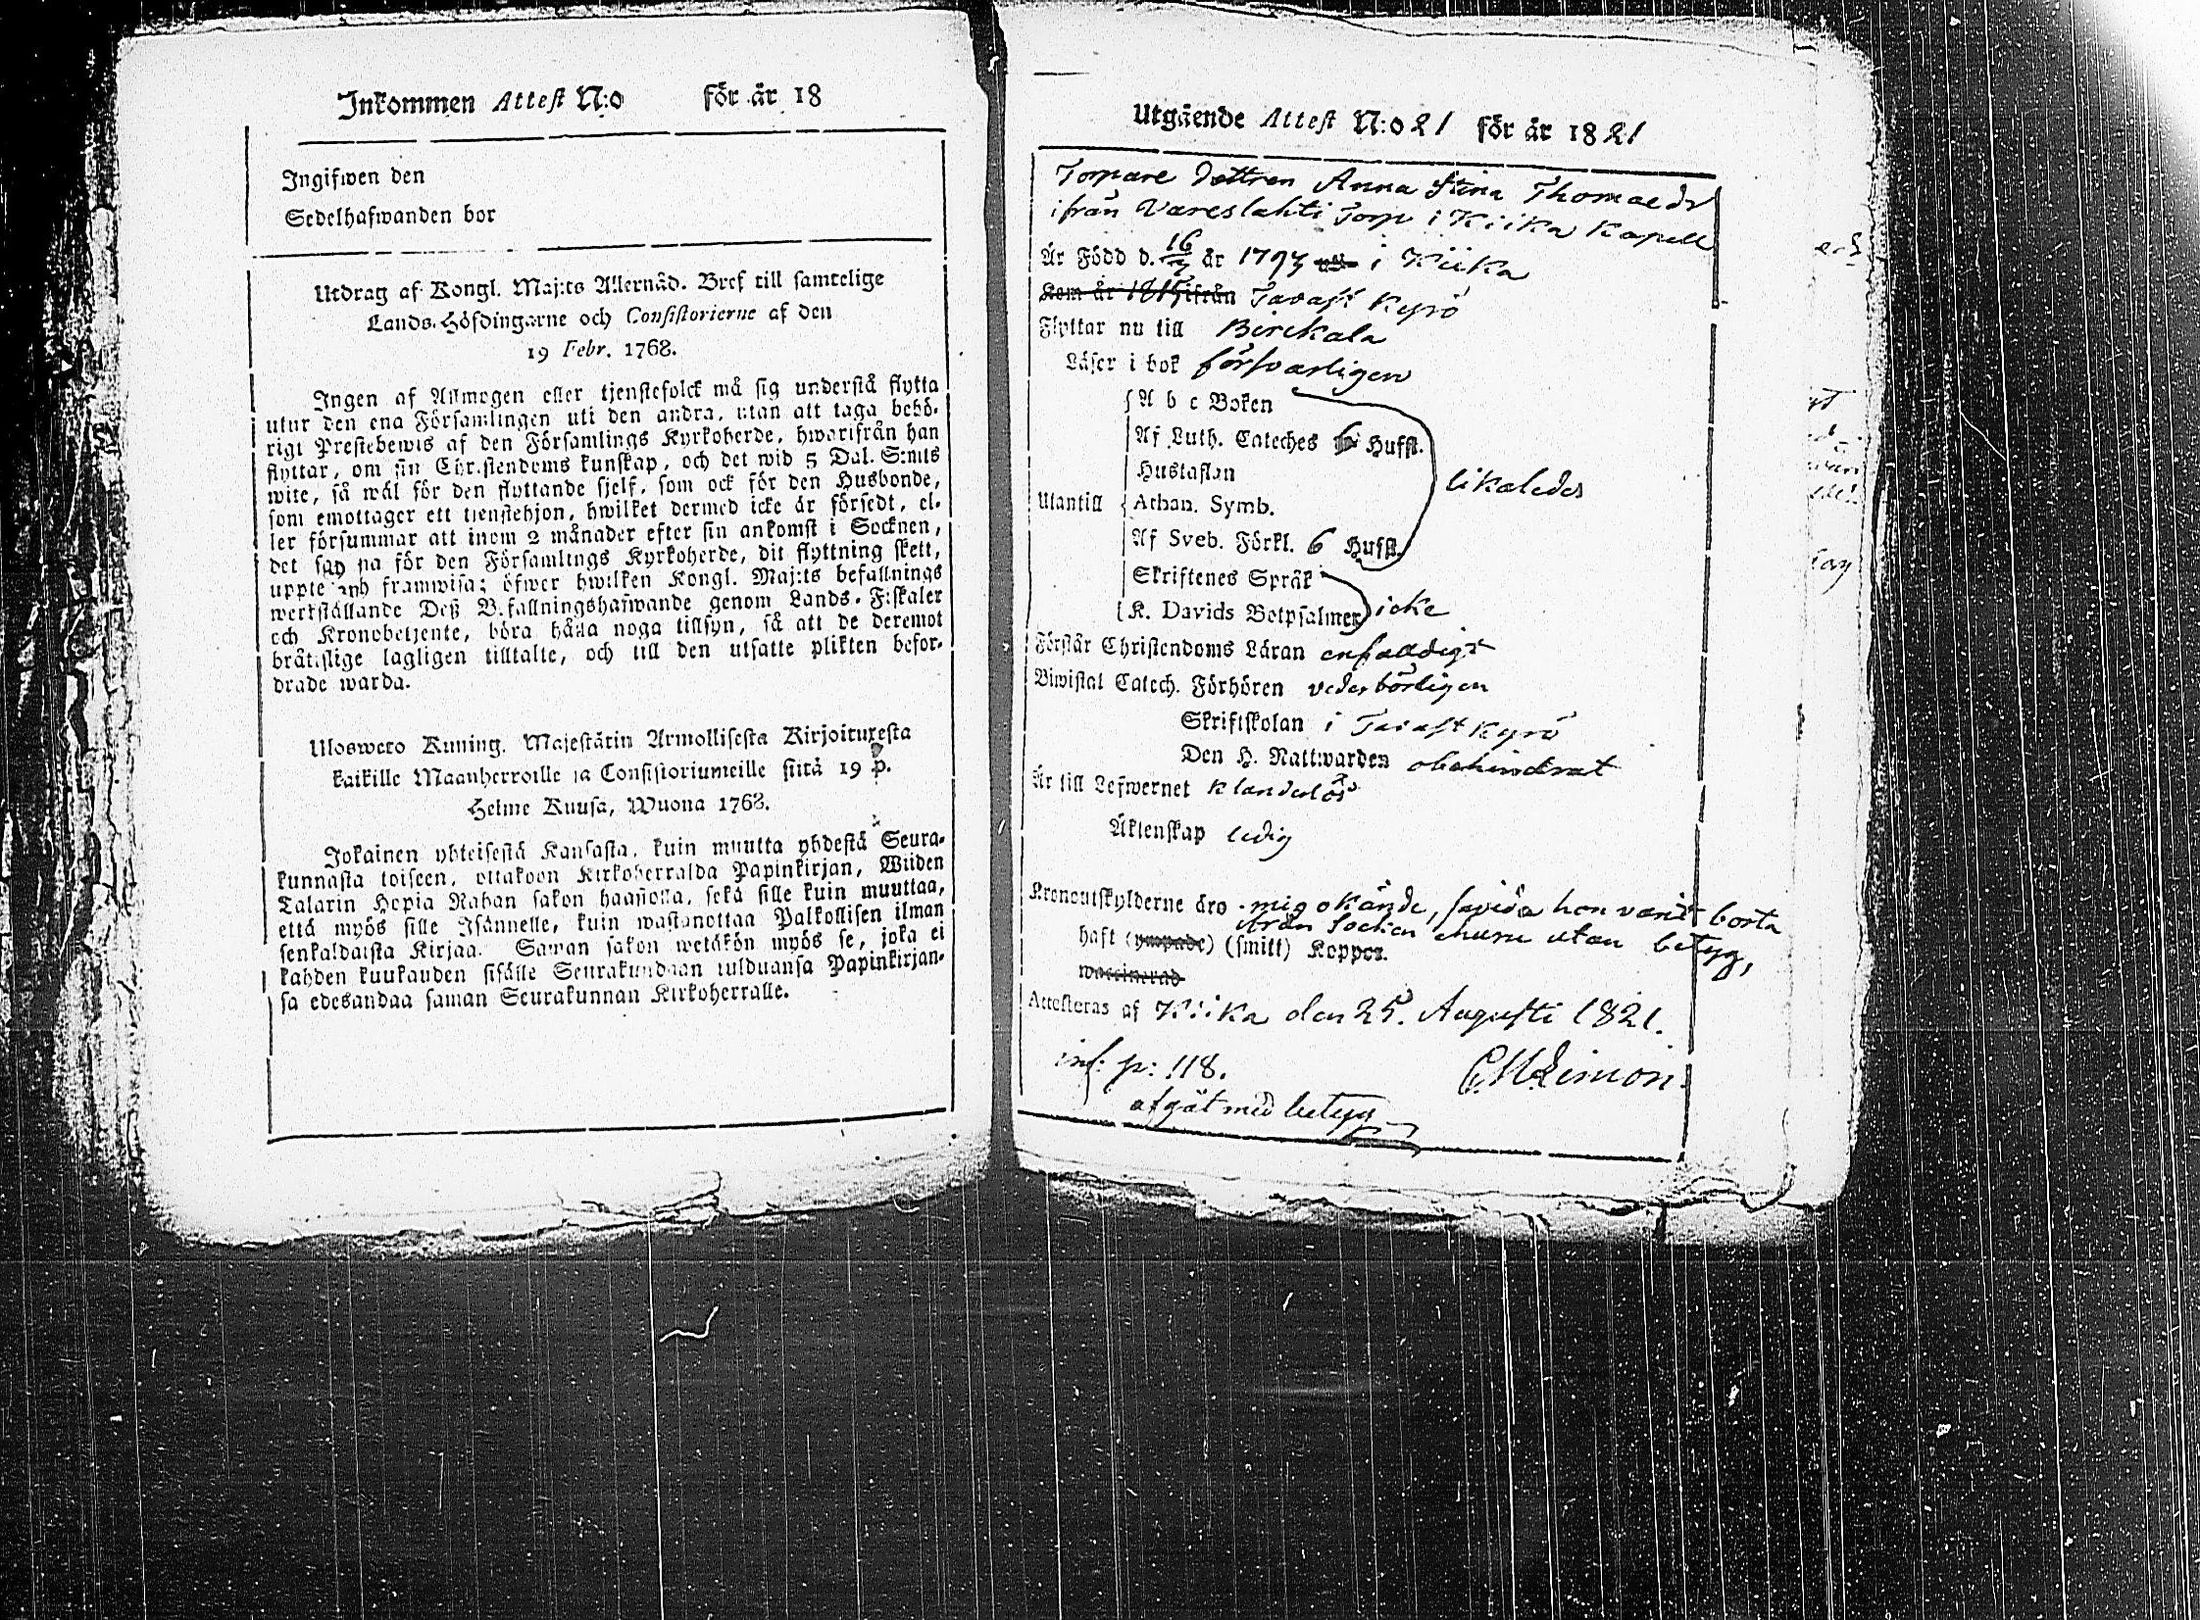 Inkommen Attest N:o för år 18
Ingifwen den
Sedelhafwanden bor
Utdrag af Kongl. Maj:ts Allernåd. Bref till samtelige
Lands-Höfdingarne och Consistorierne af den
19 Febr. 1768.
Ingen af Allmogen eller tjenstefolck må sig understå flytta
utur den ena Församlingen uti den andra, utan att taga behö-
rigt Prestebewis af den Församlings Kyrkoherde, hwarifrån han
flyttar, om sin Christendoms kunskap, och det wid 5 Dal. S:mts
wite, så wäl för den flyttande sjelf, som ock för den Husbonde,
som emottager ett tjenstehjon, hwilket dermed icke är försedt, el-
ler försummar att inom 2 månader efter sin ankomst i Socknen,
det för den Församlings Kyrkoherde, dit flyttning skett,
framwisa; öfwer hwilken Kongl. Maj:ts befallnings
werkställande Deß B.fallningshafwande genom Lands-Fiskaler
och Kronobetjente, böra hålla noga tillsyn, så att de deremot
bråtislige lagligen tilltalte, och till den utsatte plikten befor-
drade warda.
Uloswero Kuning. Majestätin Armollisesta Kirjoituxesta
kaikille Maanherroille ja Consistoriumeille siitä 19 p.
Helme Kuusa, Wuona 1768.
Jokainen yhteisestä Kansasta, kuin muutta yhdestä Seura-
kunnasta toiseen, ottakoon Kirkoherralda Papinkirjan, Wiiden
Talarin Hopia Rahan sakon haañolla, sekä sille kuin muuttaa,
että myös sille Isännelle, kuin wastanottaa Palkollisen ilman
senkaldaista Kirjaa. Saman sakon wetäkön myös se, joka ei
kahden kuukauden sisälle Seurakundaan tulduansa Papinkirjan-
sa edesandaa saman Seurakunnan Kirkoherralle.
Utgående Attest N:o 21 för år 1821
Torpare dottren Anna Stina Thomaedr
ifrån Vareslahti Torp i Kiika Kapell
Är Född d. 16/7 år 1793 i Kiika
Kom år 1815 ifrån Tavast Kyrö
Flyttar nu till Birckala
Läser i bok försvarligen
A b c Boken
Af Luth. Cateches 6 Hufst.
Hustaflan
Utantill Athan. Symb.
likaledes
Af Sveb. Förkl. 6 Hufst.
Skriftenes Språk
K. Davids Botpsalmer icke
Förstår Christendoms Läran enfaldigt
Biwistat Catech. Förhören vederbörligen
Skriftskolan i Tavast Kyrö
Den H. Nattwarden obehindrat
Är till Lefwernet klanderlös
Äktenskap ledig
Kronoutskylderne äro mig okände, savida hon varit borta
från Socken utan betyg,
haft (ympade) (smitt) Koppor.
waccinerad
Attesteras af Kiika den 25. Augusti 1821.
inf: p: 118.
C M Limon
afgåt med betyg